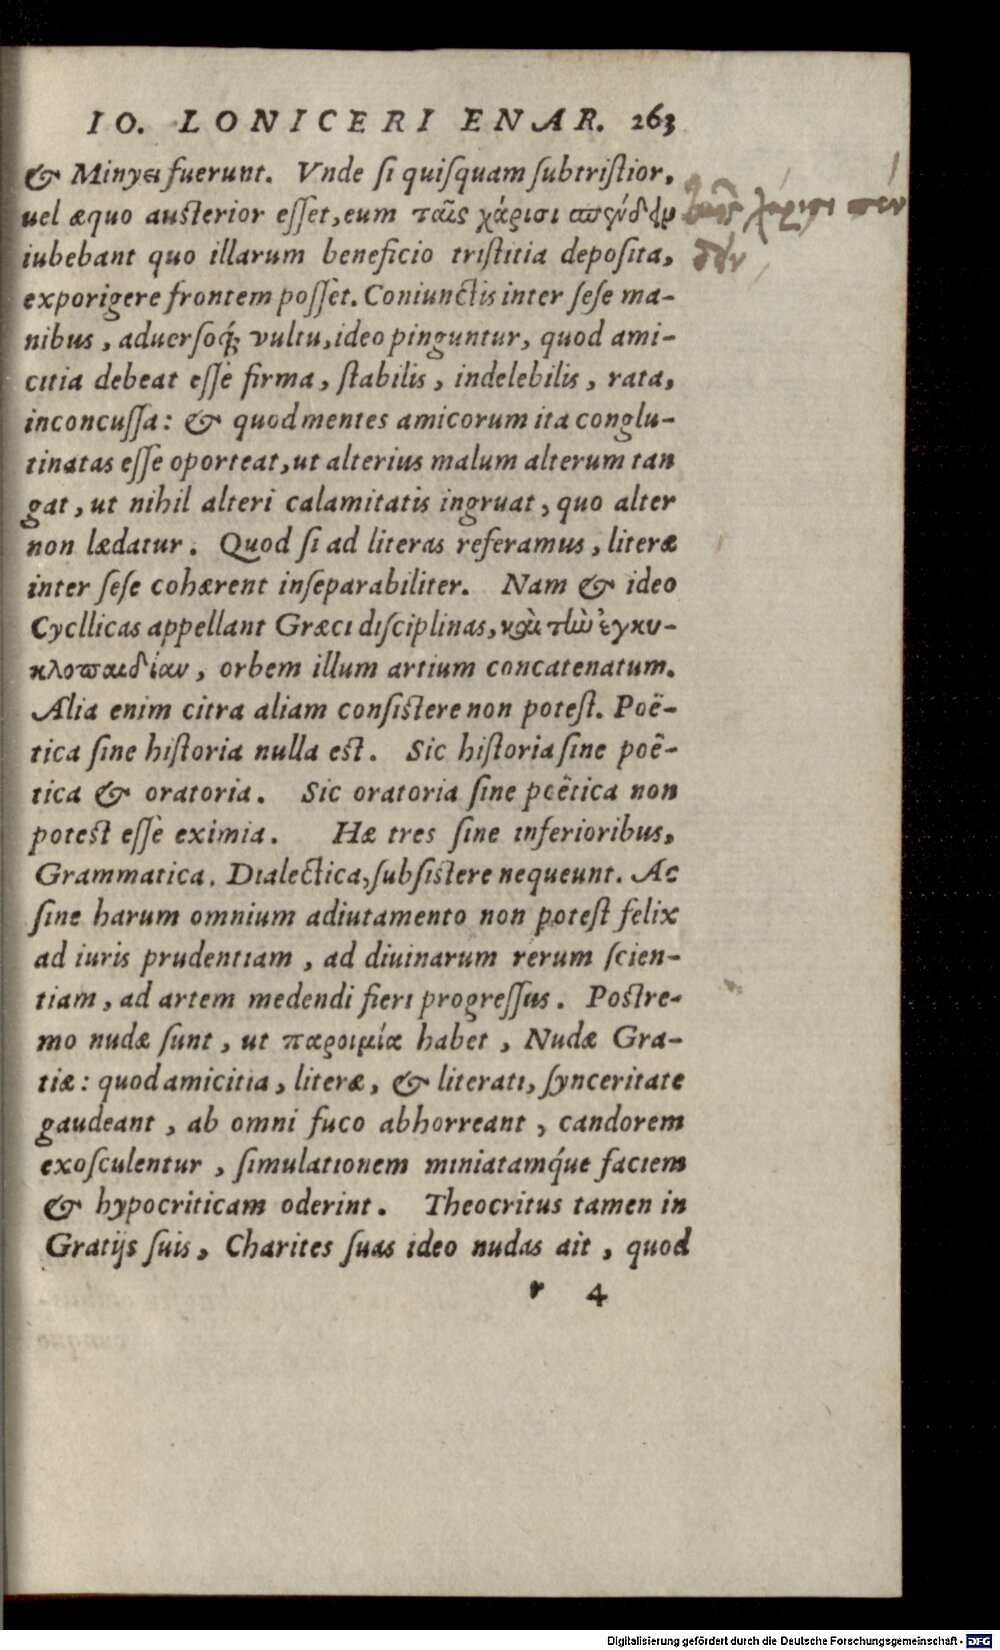 IO. LONICERI ENAR. 263
& Minyei fuerunt. Vnde si quisquam subtristior,
uel æquo austerior esset, eum ταῖς χάρισι σπένδειν
iubebant quo illarum beneficio tristitia deposita,
exporigere frontem posset. Coniunctis inter sese ma-
nibus, aduersoq́; vultu, ideo pinguntur, quod ami-
citia debeat esse firma, stabilis, indelebilis, rata,
inconcussa: & quod mentes amicorum ita conglu-
tinatas esse oporteat, ut alterius malum alterum tan
gat, ut nihil alteri calamitatis ingruat, quo alter
non lædatur. Quod si ad literas referamus, literæ
inter sese cohærent inseparabiliter. Nam & ideo
Cycllicas appellant Græci disciplinas, καὶ τὴν ἐγκυ-
κλοπαιδίαν, orbem illum artium concatenatum.
Alia enim citra aliam consistere non potest. Poë-
tica sine historia nulla est. Sic historia sine poë-
tica & oratoria. Sic oratoria sine poëtica non
potest esse eximia. Hæ tres sine inferioribus,
Grammatica, Dialectica, subsistere nequeunt. Ac
sine harum omnium adiutamento non potest felix
ad iuris prudentiam, ad diuinarum rerum scien-
tiam, ad artem medendi fieri progressus. Postre-
mo nudæ sunt, ut παροιμία habet, Nudæ Gra-
tiæ: quod amicitia, literæ, & literati, synceritate
gaudeant, ab omni fuco abhorreant, candorem
exosculentur, simulationem miniatamq́ue faciem
& hypocriticam oderint. Theocritus tamen in
Gratijs suis, Charites suas ideo nudas ait, quod
r 4
χάρισι
Digitalisierung gefördert durch die Deutsche Forschungsgemeinschaft - DFG